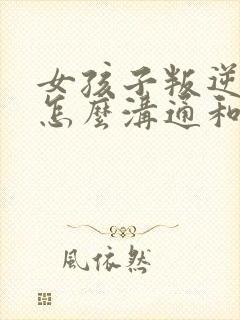 女孩子叛逆
怎麼溝通和
風依然